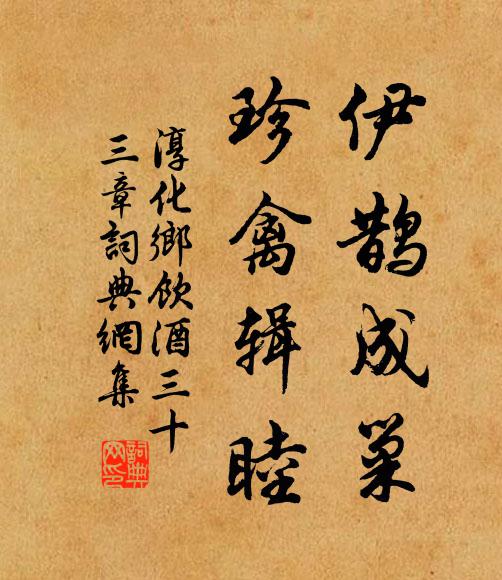 伊鹊成巢
珍禽辑睦
淳化鄉飲酒三十
三章詞典網集
詞典
网印